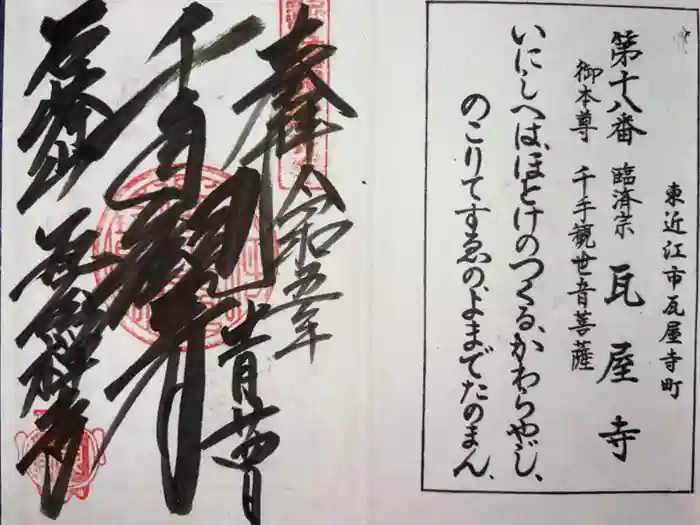 東近江市瓦屋寺町
第十八番 臨済宗 瓦屋寺
御本尊 千手観世音菩薩
いにしへは、ほとけのつくる、かわらやじ、
のこりてすゑの、よまでたのまん、
奉拝
令和五年
瓦屋禅寺